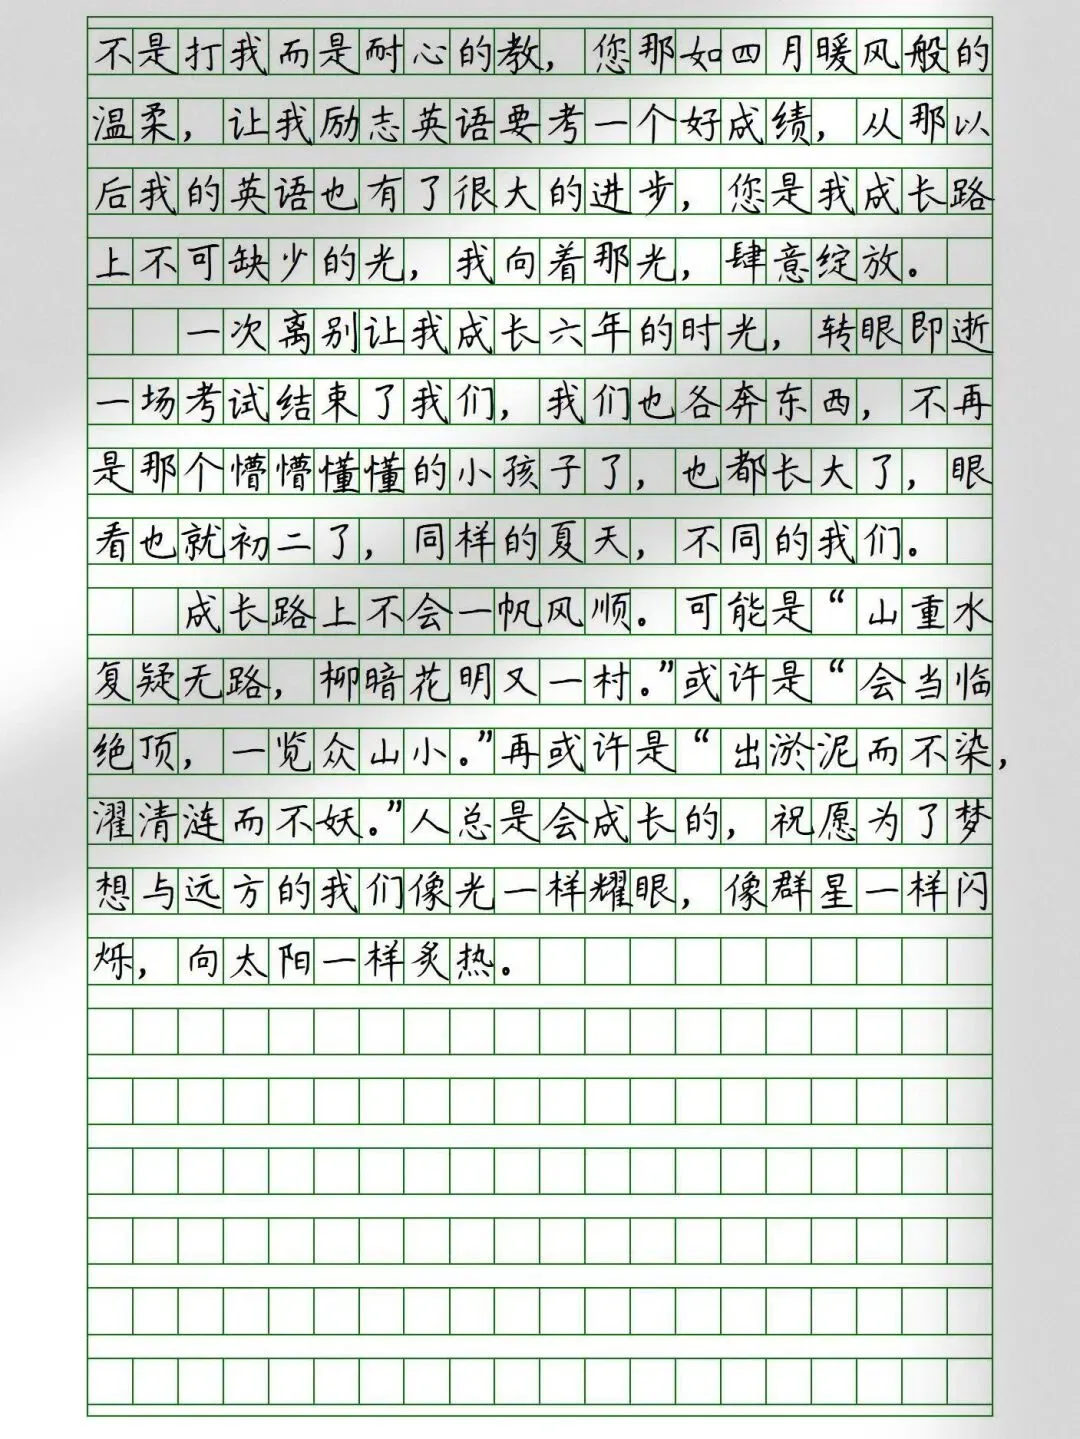 不是打我而是耐心的教，您那如四月暖风般的
温柔，让我励志英语要考一个好成绩，从那以
后我的英语也有了很大的进步，您是我成长路
上不可缺少的光，我向着那光，肆意绽放。
一次离别让我成长六年的时光，转眼即逝
一场考试结束了我们，我们也各奔东西，不再
是那个懵懵懂懂的小孩子了，也都长大了，眼
看也就初二了，同样的夏天，不同的我们。
成长路上不会一帆风顺。可能是“山重水
复疑无路，柳暗花明又一村。”或许是“会当临
绝顶，一览众山小。”再或许是“出淤泥而不染，
濯清涟而不妖。”人总是会成长的，祝愿为了梦
想与远方的我们像光一样耀眼，像群星一样闪
烁，向太阳一样炙热。